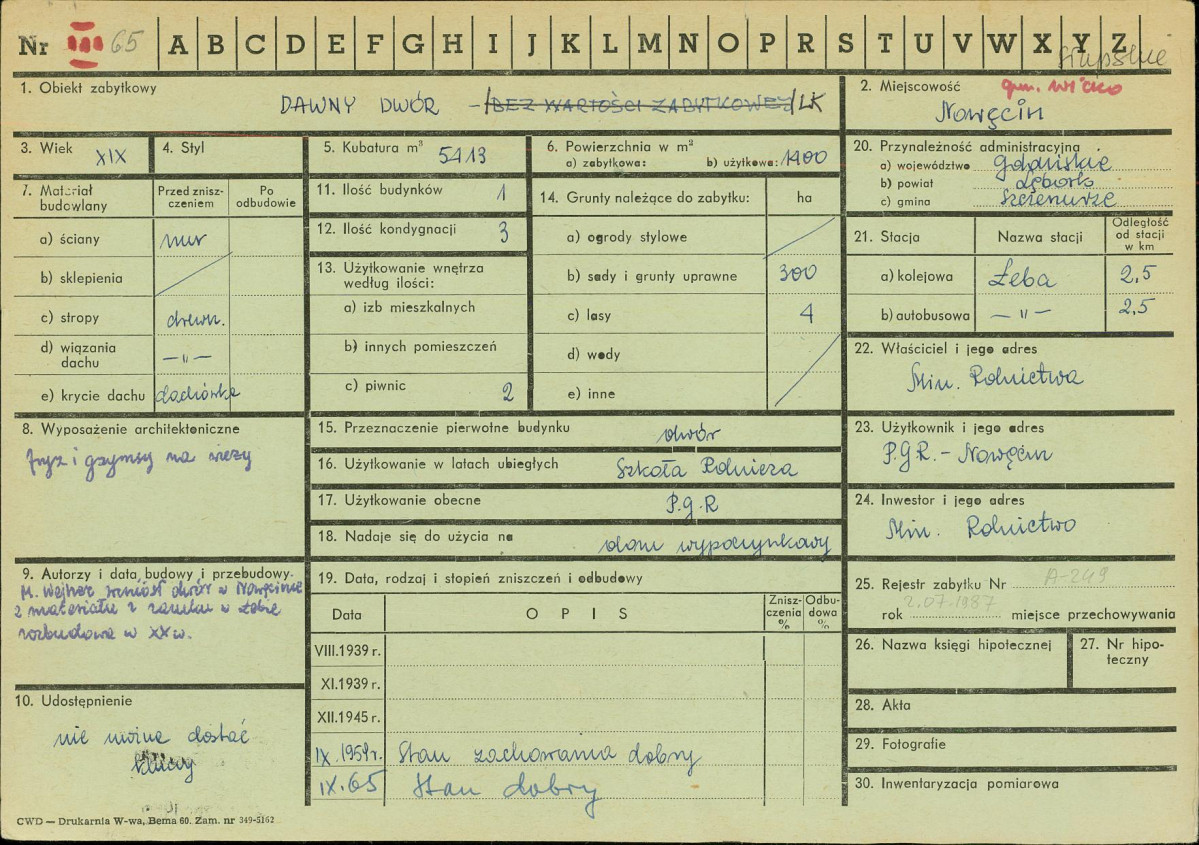 Nr 65 A B C D E F G H I J K L M N O P R S T U V W X Y Z
słupskie
1. Obiekt zabytkowy
DAWNY DWÓR - /BEZ WARTOŚCI ZABYTKOWEJ/ ŁK
2. Miejscowość gm. Wicko
Nowęcin
3. Wiek XIX
4. Styl
5. Kubatura m³ 5413
6. Powierzchnia w m²
a) zabytkowa: b) użytkowa: 1400
20. Przynależność administracyjna
a) województwo Gdańskie
b) powiat Lębork
c) gmina Szczenurze
7. Materiał budowlany
Przed zniszczeniem
Po odbudowie
a) ściany mur
b) sklepienia
c) stropy drewn.
d) wiązania dachu — " —
e) krycie dachu dachówka
11. Ilość budynków 1
12. Ilość kondygnacji 3
13. Użytkowanie wnętrza według ilości:
a) izb mieszkalnych
b) innych pomieszczeń
c) piwnic 2
14. Grunty należące do zabytku: ha
a) ogrody stylowe
b) sady i grunty uprawne 300
c) lasy 4
d) wody
e) inne
21. Stacja Nazwa stacji Odległość od stacji w km
a) kolejowa Łeba 2,5
b) autobusowa — " — 2,5
22. Właściciel i jego adres
Min. Rolnictwa
8. Wyposażenie architektoniczne
fryz i gzymsy na wieży
15. Przeznaczenie pierwotne budynku dwór
16. Użytkowanie w latach ubiegłych Szkoła Rolnicza
17. Użytkowanie obecne P.G.R
18. Nadaje się do użycia na dom wypoczynkowy
23. Użytkownik i jego adres
P.G.R. - Nowęcin
24. Inwestor i jego adres
Min. Rolnictwo
9. Autorzy i data budowy i przebudowy.
M. Wejher wzniósł dwór w Nowęcinie
z materiału z zamku w Łebie
rozbudowa w XX w.
10. Udostępnienie
nie można dostać
kluczy
19. Data, rodzaj i stopień zniszczeń i odbudowy
Data OPIS Zniszczenia % Odbudowa %
VIII.1939 r.
XI.1939 r.
XII.1945 r.
IX.1959r. Stan zachowania dobry
IX.65 Stan dobry
25. Rejestr zabytku Nr A-249
rok 2.07.1987 miejsce przechowywania
26. Nazwa księgi hipotecznej
27. Nr hipoteczny
28. Akta
29. Fotografie
30. Inwentaryzacja pomiarowa
CWD — Drukarnia W-wa, Bema 60. Zam. nr 349-5162